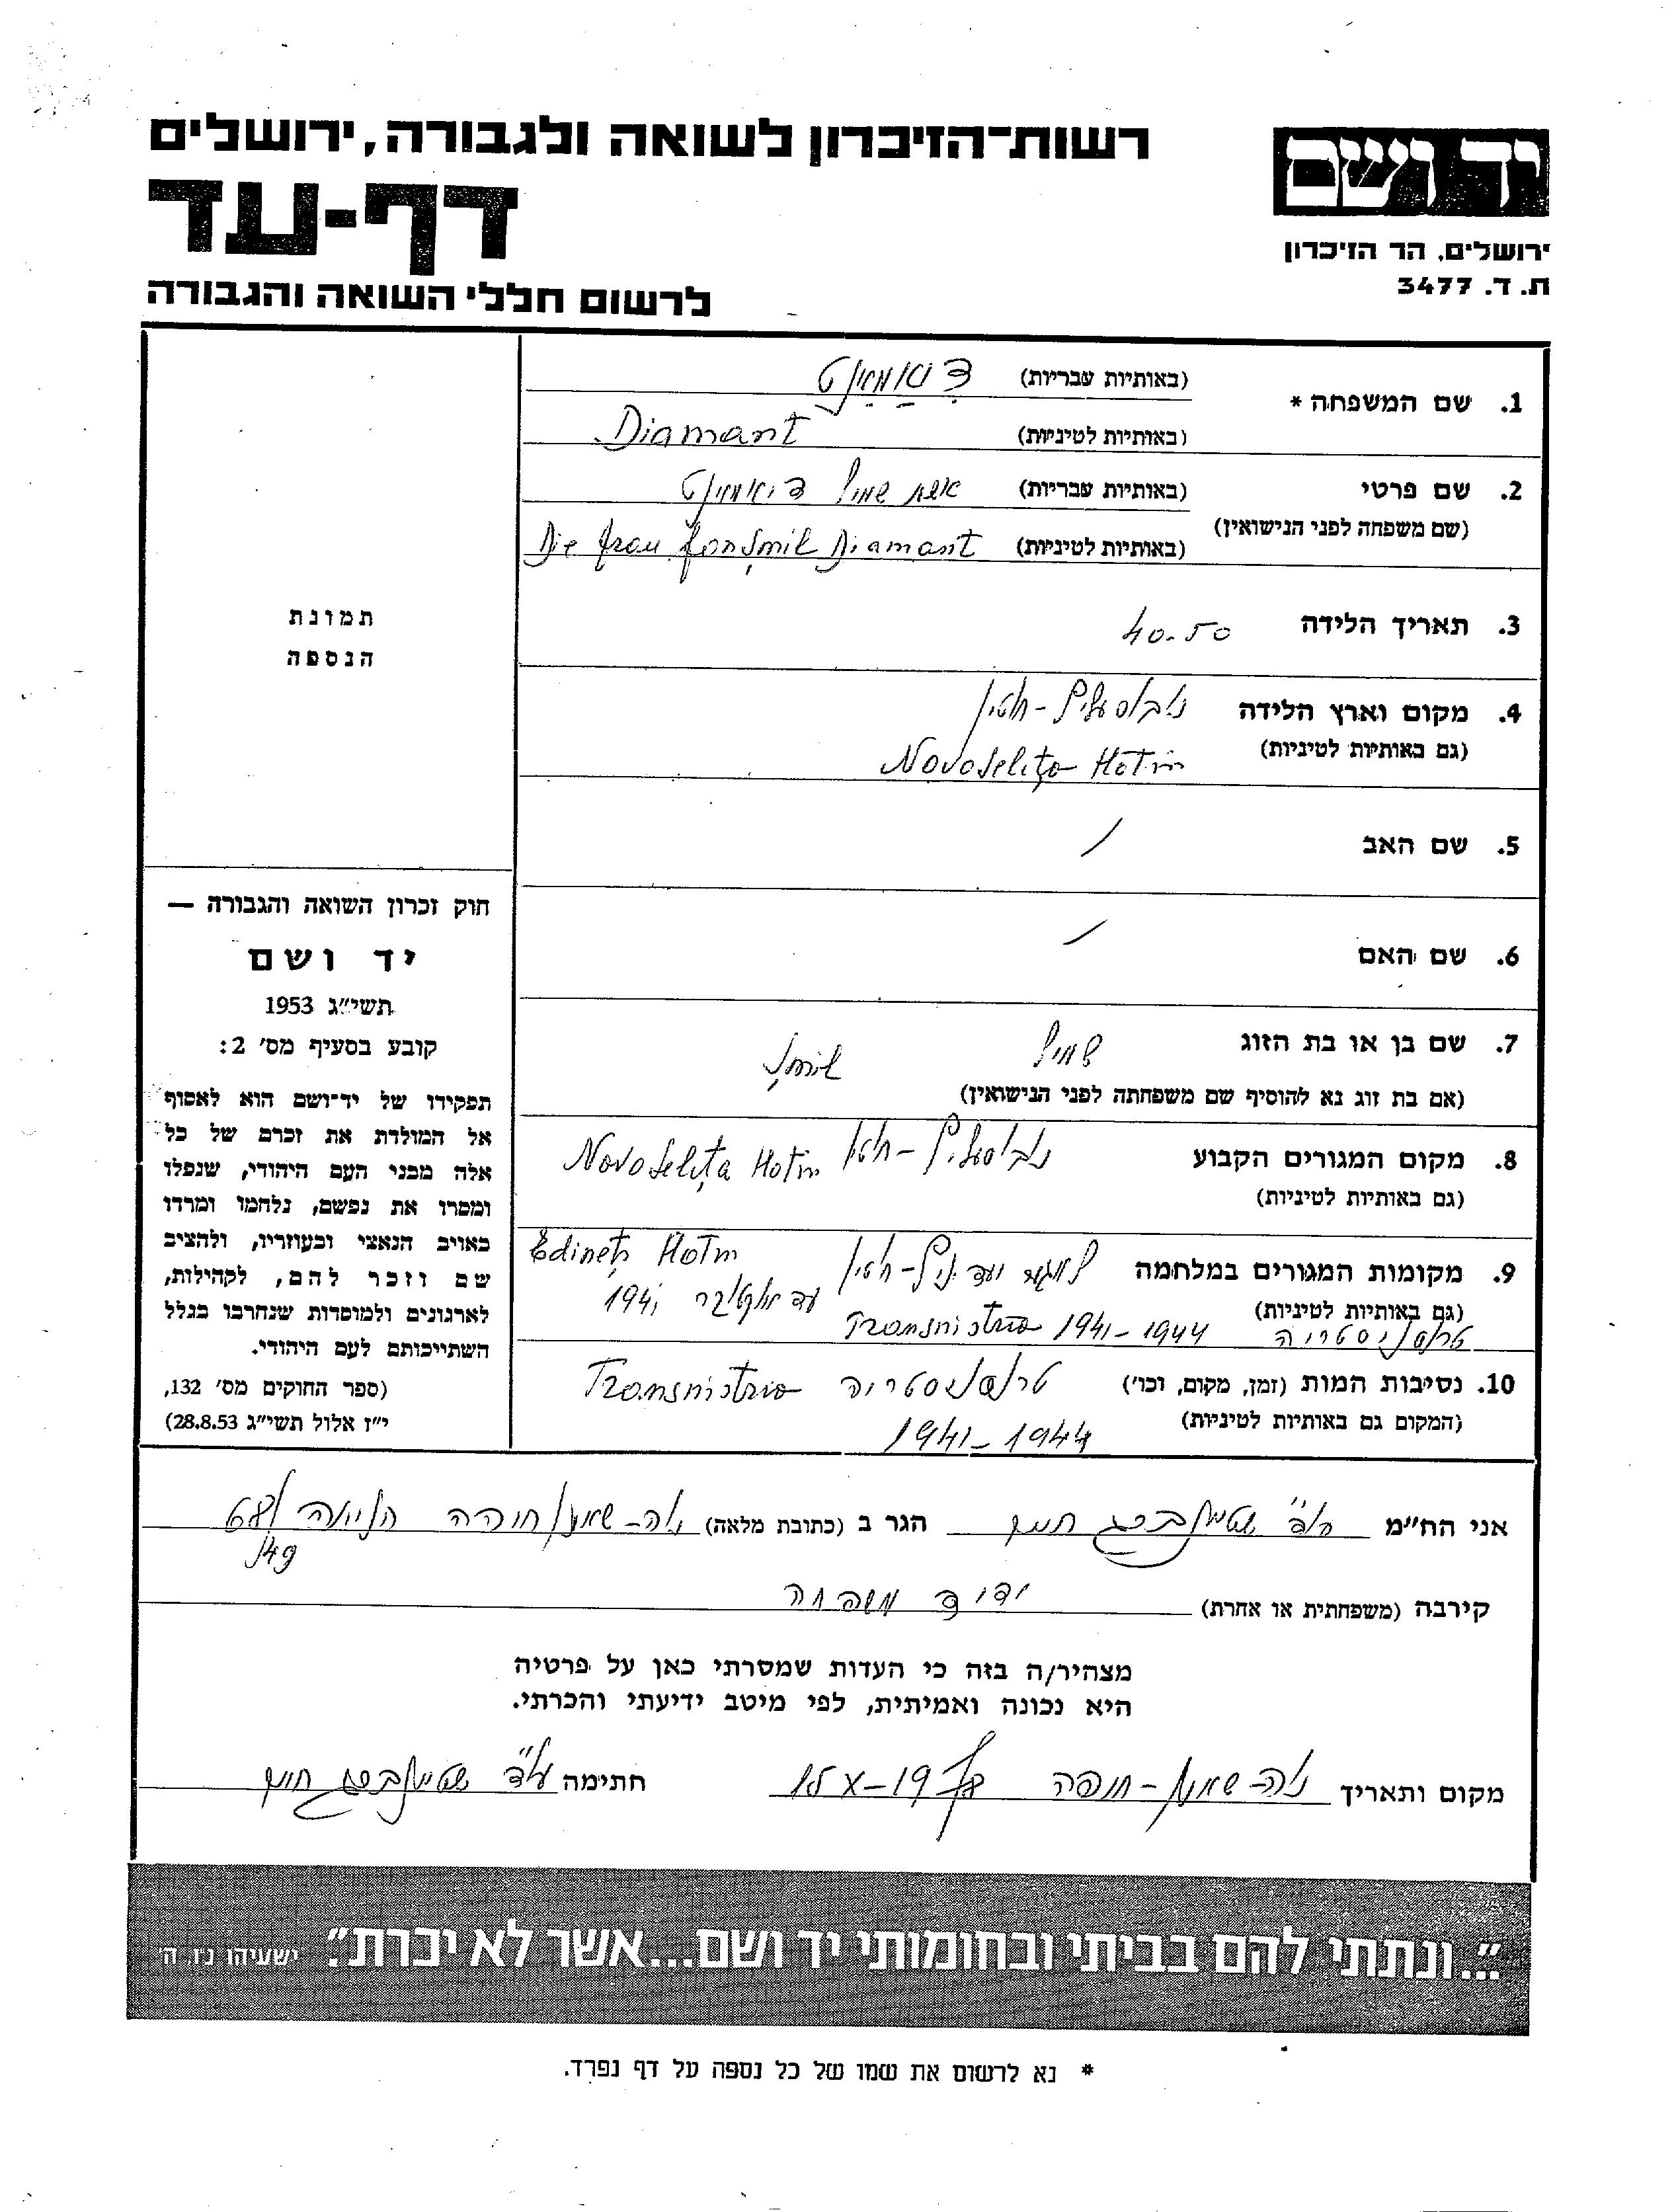 יד ושם
ירושלים, הר הזיכרון
ת.ד. 3477
רשות־הזיכרון לשואה ולגבורה, ירושלים
דף-עד
לרשום חללי השואה והגבורה
1. שם המשפחה * (באותיות עבריות) דיאמאנט
(באותיות לטיניות) Diamant
2. שם פרטי (באותיות עבריות) אשת שמיל דיאמאנט
(שם משפחה לפני הנישואין)
(באותיות לטיניות) Die frau fon Șmil Diamant
3. תאריך הלידה 40-50
4. מקום וארץ הלידה נובוסעליץ-חוטין
(גם באותיות לטיניות) Novoselița Hotin
5. שם האב /
6. שם האם /
7. שם בן או בת הזוג שמיל Șmil
(אם בת זוג נא להוסיף שם משפחתה לפני הנישואין)
8. מקום המגורים הקבוע נובוסעליץ-חוטין Novoselița Hotin
(גם באותיות לטיניות)
9. מקומות המגורים במלחמה חוטין Edineț Hotin
(גם באותיות לטיניות) עד אוקטובר 1941
טרנסניסטריה Transnistria 1941-1944
10. נסיבות המות (זמן, מקום, וכו') טרנסניסטריה Transnistria
(המקום גם באותיות לטיניות) 1941-1944
תמונת
הנספה
חוק זכרון השואה והגבורה —
יד ושם
תשי"ג 1953
קובע בסעיף מס' 2:
תפקידו של יד־ושם הוא לאסוף
אל המולדת את זכרם של כל
אלה מבני העם היהודי, שנפלו
ומסרו את נפשם, נלחמו ומרדו
באויב הנאצי ובעוזריו, ולהציב
שם וזכר להם, לקהילות,
לארגונים ולמוסדות שנחרבו בגלל
השתייכותם לעם היהודי.
(ספר החוקים מס' 132,
י"ז אלול תשי"ג 28.8.53)
אני הח"מ שטיינברג חיים הגר ב (כתובת מלאה) נוה-שאנן חיפה
קירבה (משפחתית או אחרת) ידיד משפחה
מצהיר/ה בזה כי העדות שמסרתי כאן על פרטיה
היא נכונה ואמיתית, לפי מיטב ידיעתי והכרתי.
מקום ותאריך נוה-שאנן-חיפה 15 X-19 חתימה עו"ד שטיינברג חיים
"...ונתתי להם בביתי ובחומותי יד ושם...אשר לא יכרת". ישעיהו נ"ו, ה'
* נא לרשום את שמו של כל נספה על דף נפרד.